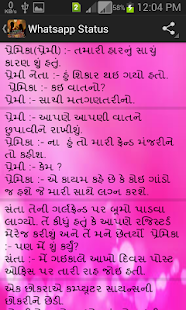 0 K/s
12:04 PM
Whatsapp Status
પ્રેમિકા(પ્રેમી) :- તમારી હારનું સાચું
કારણ શું હતું.
પ્રેમી નેતા :- હું શિકાર થઇ ગયો હતો.
પ્રેમિકા :- કઇ વાતનો?
પ્રેમી :- સાચી મતગણતરીનો.
પ્રેમી :- આપણે આપણી વાતને
છુપાવીને રાખીશું.
પ્રેમિકા :- ના, હું તો મારી ફ્રેન્ડ મંજરીને
તો કહીશ.
પ્રેમી :- કેમ.
પ્રેમિકા :- એ કાયમ કહે છે કે કોઇ ગાંડો
જ હશે જે મારી સાથે લગ્ન કરશે.
સંતા તેની ગર્લફ્રેન્ડ પર બુમો પાડવા
લાગ્યો. તેં કીધું હતું કે આપણે રજિસ્ટર્ડ
મેરેજ કરીશું અને તેં મને છેતર્યો પ્રેમિકા
:- પણ મેં શું કર્યું?
સંતા :- મેં ગઇકાલે આખો દિવસ પોસ્ટ
ઓફિસ પર તારી રાહ જોઇ હતી.
એક છોકરાએ કમ્પ્યુટર સાયન્સની
છોકરીને છેડી.